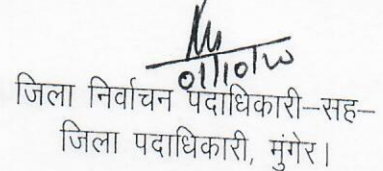 01/10/20
जिला निर्वाचन पदाधिकारी–सह–
जिला पदाधिकारी, मुंगेर।